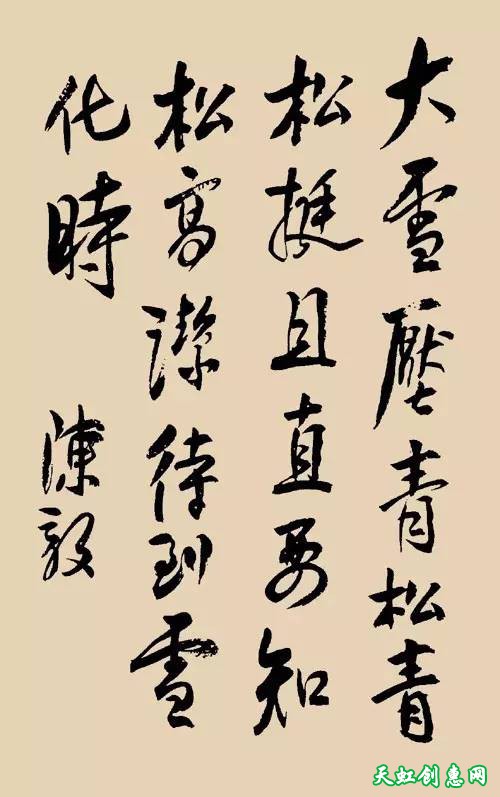 大雪壓青松青
松挺且直要知
松高潔待到雪
化時 陳毅
天虹创惠网